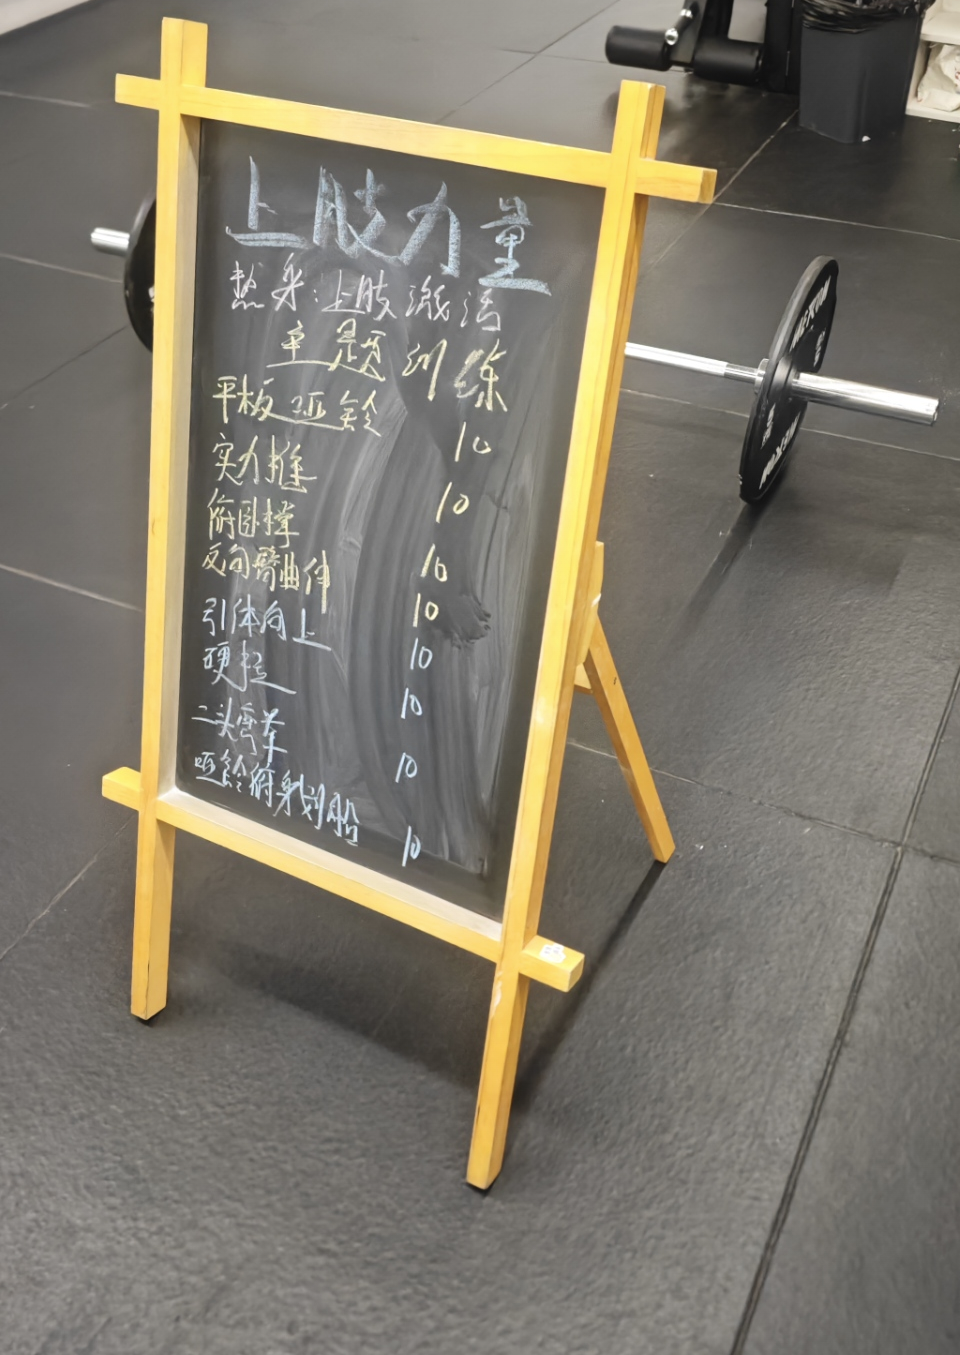 上肢力量
热身:上肢激活
主题训练
平板哑铃 10
实力推 10
俯卧撑 10
反向臂曲伸 10
引体向上 10
硬拉 10
二头弯举 10
哑铃俯身划船 10